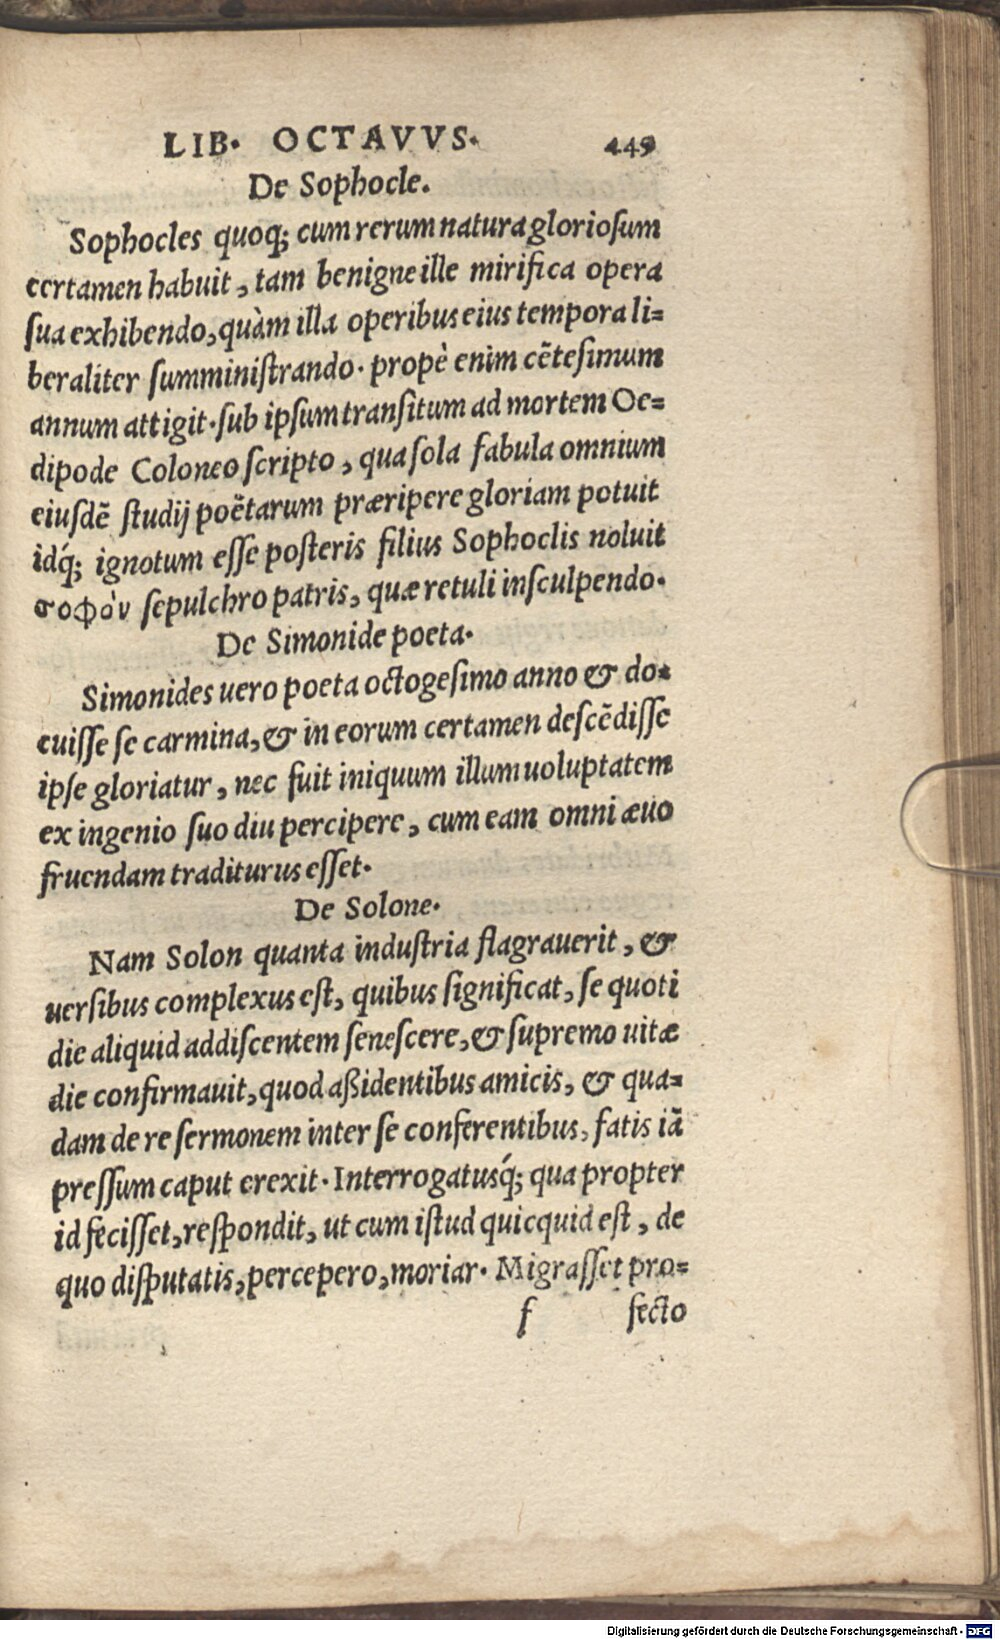 LIB. OCTAVVS. 449
De Sophocle.
Sophocles quoq; cum rerum natura gloriosum
certamen habuit, tam benigne ille mirifica opera
sua exhibendo, quàm illa operibus eius tempora li=
beraliter sumministrando. propè enim cẽtesimum
annum attigit. sub ipsum transitum ad mortem Oe=
dipode Coloneo scripto, qua sola fabula omnium
eiusdẽ studij poëtarum præripere gloriam potuit
idq́; ignotum esse posteris filius Sophoclis noluit
σοφὸν sepulchro patris, quæ retuli insculpendo.
De Simonide poeta.
Simonides uero poeta octogesimo anno & do=
cuisse se carmina, & in eorum certamen descẽdisse
ipse gloriatur, nec fuit iniquum illum uoluptatem
ex ingenio suo diu percipere, cum eam omni æuo
fruendam traditurus esset.
De Solone.
Nam Solon quanta industria flagrauerit, &
uersibus complexus est, quibus significat, se quoti
die aliquid addiscentem senescere, & supremo uitæ
die confirmauit, quod aßidentibus amicis, & qua=
dam de re sermonem inter se conferentibus, fatis iã
pressum caput erexit. Interrogatusq́; qua propter
id fecisset, respondit, ut cum istud quicquid est, de
quo disputatis, percepero, moriar. Migrasset pro=
f fecto
Digitalisierung gefördert durch die Deutsche Forschungsgemeinschaft - DFG